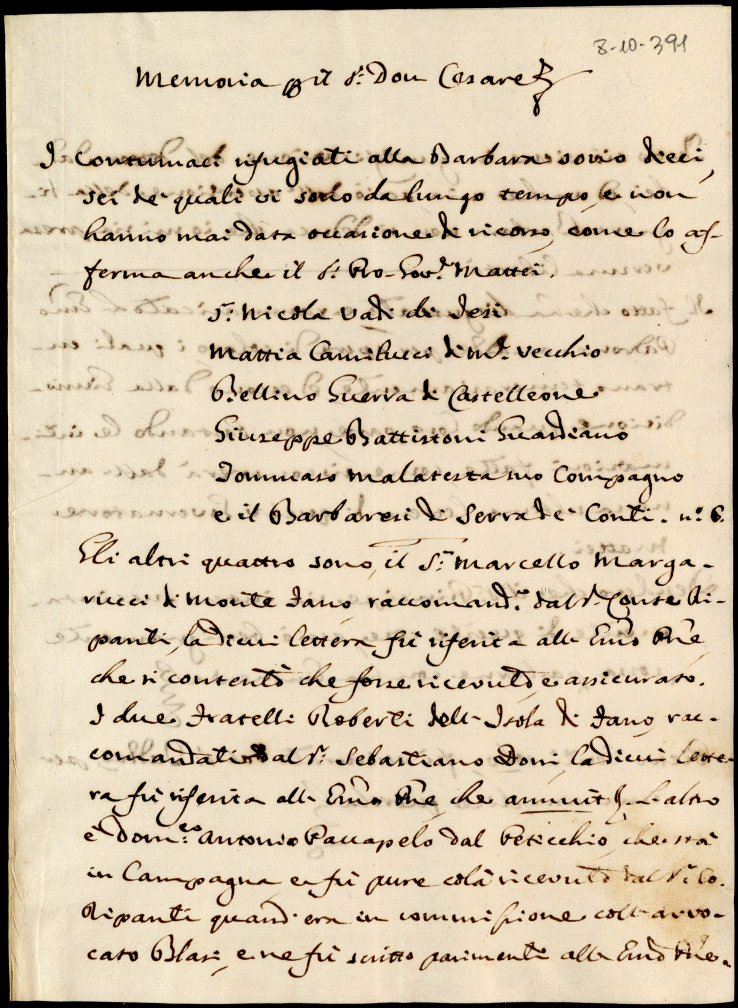 8-10-391
Memoria p il Sr. Don Cesare
I Contumaci rifugiati alla Barbara sono dieci,
sei de quali vi sono da lungo tempo, e non
hanno mai data occasione di ricorso, come lo af-
ferma anche il Sr. Pro-Govr. Mattei.
Sr. Nicola Vadi di Jesi
Mattia Camilucci di Me. Vecchio
Bellino Guerra di Castelleone
Giuseppe Battistoni Guardiano
Tommaso Malatesta suo Compagno
e il Barbaresi di Serra de' Conti. n.o 6.
Gli altri quattro sono, il Sr. Marcello Marga-
rucci di Monte Fano raccomand.o dal Sr. Conte Ri-
panti, la di cui lettera fù riferita all' Emo Pne
che si contentò che fosse ricevuto, e assicurato.
I due Fratelli Roberti dell' Isola di Fano, rac-
comandati dal Sr. Sebastiano Doni, la di cui lette-
ra fù riferita all' Emo Pne, che annuit. L'altro
è Dom.co Antonio Paccapelo dal Peticchio, che stà
in Campagna e fù pure colà ricevuto dal Sr. Co.
Ripanti quand' era in commissione coll' avvo-
cato Blasi, e ne fù scritto parimenti all' Emo Pne.